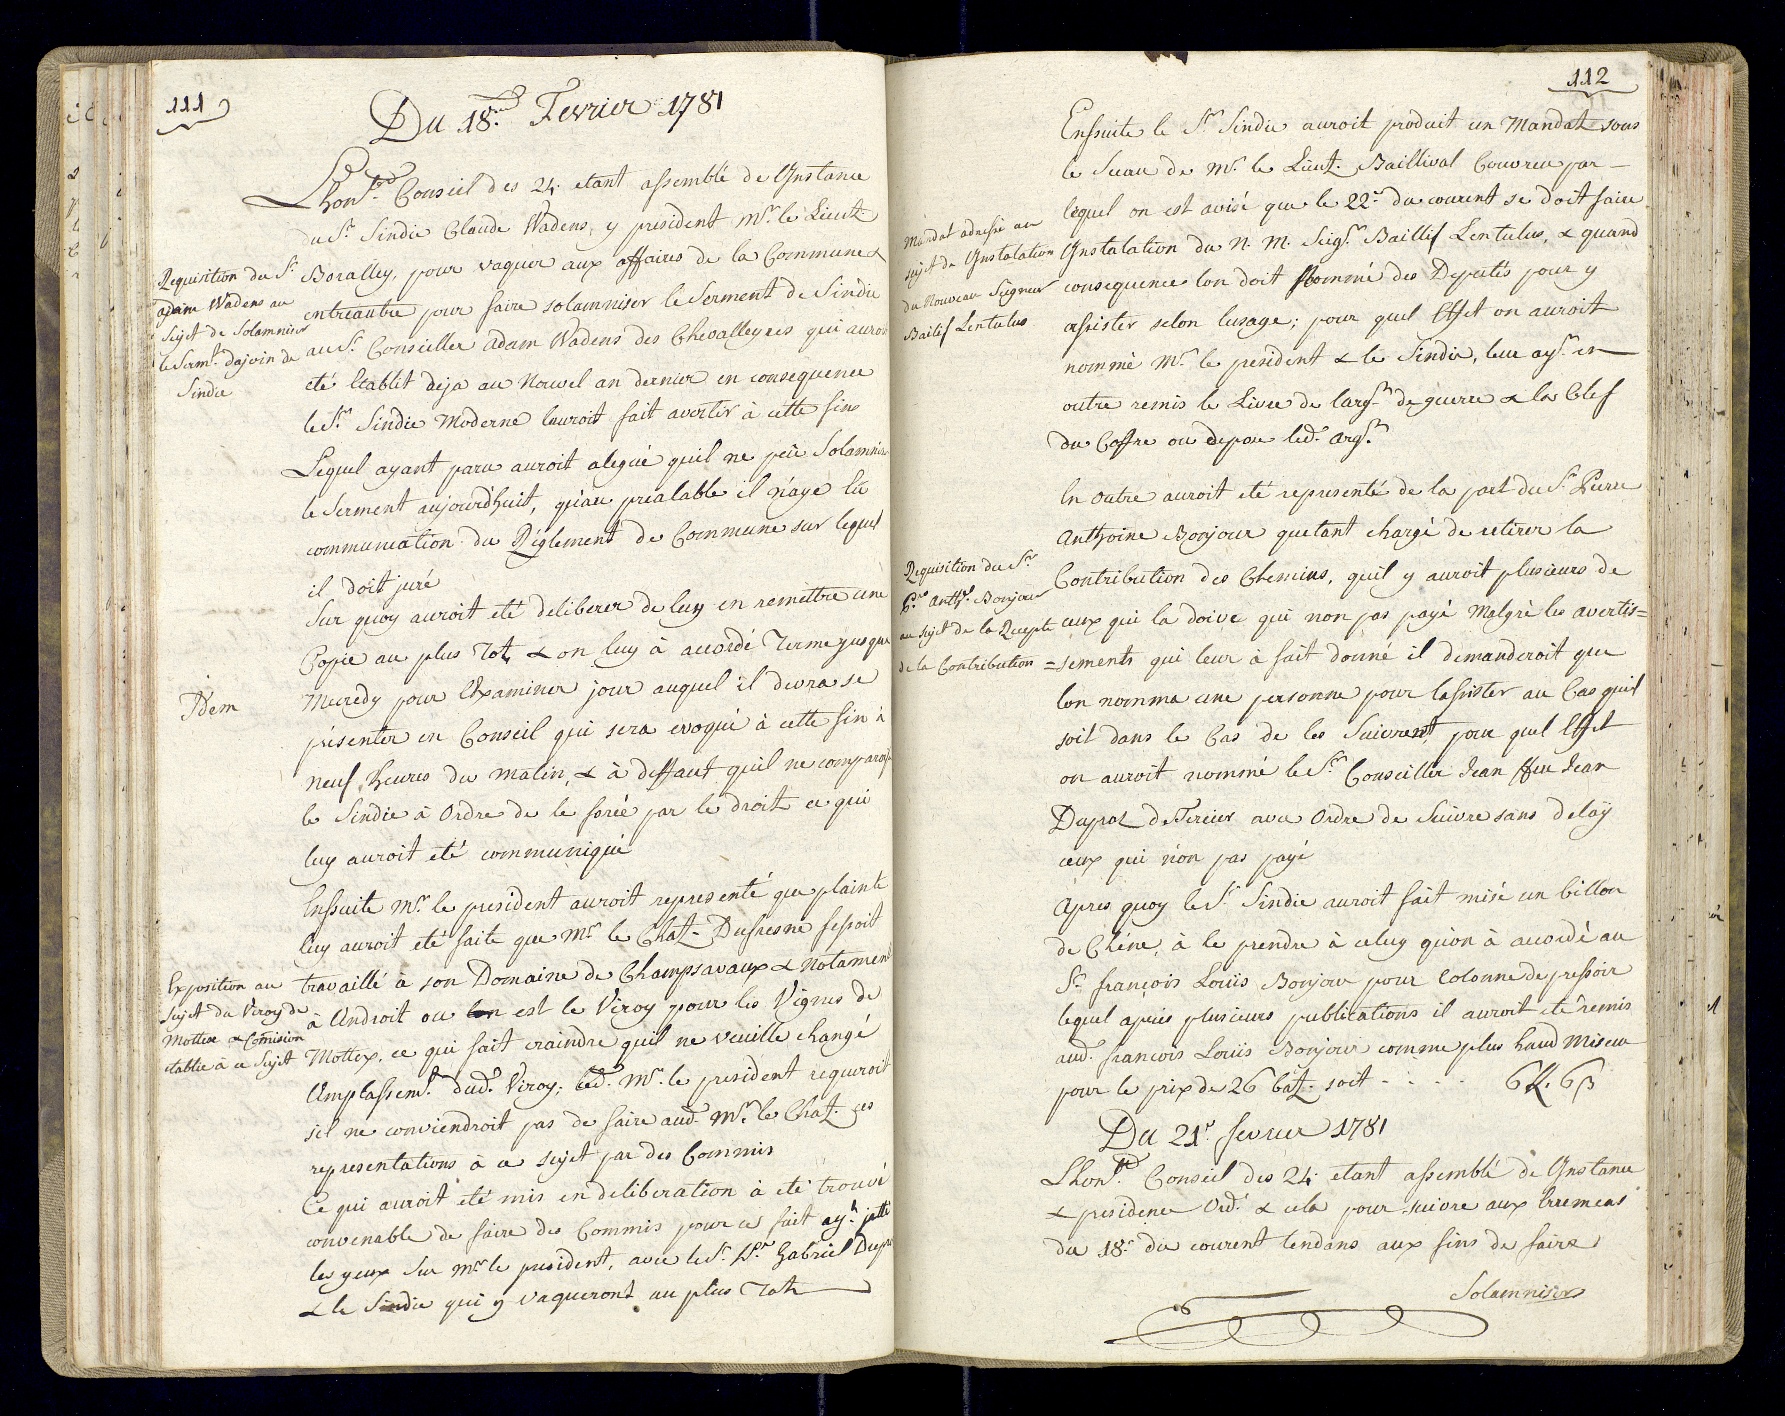 111
Du 18.me Fevrier 1781
Lhon.ble Conseil des 24. etant assemblé de Ynstance
du S.r Sindic Claude Wadens, y president M.r le Lieut.
Requisition du S.r
adam Wadens au
Sujet de Solamniser
le Serm.t dajoin de
Sindic
Boralley, pour vaquer aux affaires de la Commune &
entreautre pour faire solamniser le Serment de Sindic
au S.r Conseiller adam Wadens des Chevalleyres qui auroit
eté Etablit deja au Nouvel an dernier en consequence
le S.r Sindic Moderne lauroit fait avertir à cette fins
Lequel ayant paru auroit alegué quil ne peùt Solamniser
le Serment aujourdhuit, qu'au prealable il n'aye Eü
communication du Réglement de Commune sur lequel
il doit juré
Sur quoy auroit eté deliberer de luy en remettre une
Idem
Copie au plus Tot, & on luy à accordé Terme jusque
Mecredy pour Examiner jour auquel il devra se
présenter en Conseil qui sera evoqué à cette fin à
neuf heures du matin, & à deffaut quil ne comparoisse
le Sindic à Ordre de le forcé par le droit ce qui
luy auroit eté communiqué
Ensuite M.r le president auroit representé que plainte
luy auroit eté faite que M.r le Chat. Dufresne fesoit
Exposition au
Sujet du Viroy de
Mottex & Comision
etablie à ce Sujet
travaillé à son Domaine de Champsavaux & notament
à Androit ou est le Viroy pour les Vignes de
Mottex, ce qui fait craindre quil ne veuille changé
Amplassem.t dud.t Viroy; led.t M.r le president requeroit
sil ne conviendroit pas de faire aud.t M.r le Chat. ces
representations à ce sujet par des Commis
Ce qui auroit eté mis en deliberation à eté trouvé
convenable de faire des Commis pour ce fait ay.t jetté
les yeux Sur M.r le president, avec le S.r Gabriel
& le Sindic qui y vaqueront au plus Tot
112
Ensuite le S.r Sindic auroit produit un Mandat sous
le Sceau de M.r le Lieut. Baillival Couvreu par
lequel on est avisé que le 22.e du courent se doit faire
Mandat adressé au
sujet de Ynstalation
du Nouveau Seigneur
Bailif Lentulus
Ynstalation du N. M. Seig.r Baillif Lentulus, & quand
consequence lon doit Nommé des Deputés pour y
assister selon lusage; pour quel Effet on auroit
nommé M.r le president & le Sindic, leur ay.t en
outre remis le Livre de larg.t de guerre & la Clef
du Coffre ou depose led.t arg.t
En outre auroit eté representé de la part du S.r Pierre
Anthoine Bonjour quetant chargé de retirer la
Requisition du S.r
P.re Anth.e Bonjour
au sujet de la Recepte
de la Contribution
Contribution des Chemins, quil y auroit plusieurs de
ceux qui la doive qui non pas payé Malgré les avertis=
=sements qui leur à fait donné il demanderoit que
lon nomma une personne pour lassister au Cas quil
soit dans le Cas de les Suivrent, pour quel Effet
on auroit nommé le S.r Conseiller Jean ffeu Jean
Dupraz de Tercier avec Ordre de Suivre sans delaÿ
ceux qui n'on pas payé
Apres quoy le S.r Sindic auroit fait misé un billon
de Chéne, à le prendre à celuy qu'on à accordé au
S.r françois Loüis Bonjour pour Colonne de pressoir
lequel aprés plusieurs publications il auroit eté remis
aud.t françois Loüis Bonjour comme plus haud Miseur
pour le prix de 26 batz. soit - - - - 6 L. 6 β
Du 21.e fevrier 1781
Lhon.ble Conseil des 24. etant assemblé de Ynstance
& presidence Ord.e & cela pour suivre aux Erremens
du 18.e du courent tendans aux fins de faire
Solamniser